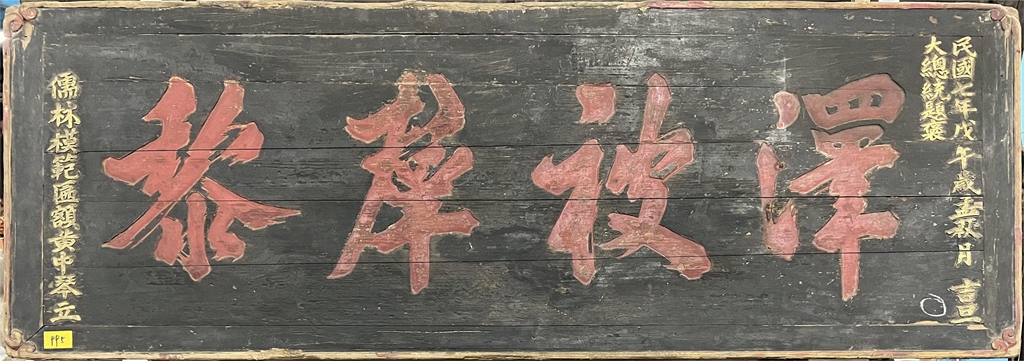 民國七年戊午歲孟秋月 吉旦
大總統題褒
澤被羣黎
儒林模範匾額黃中立